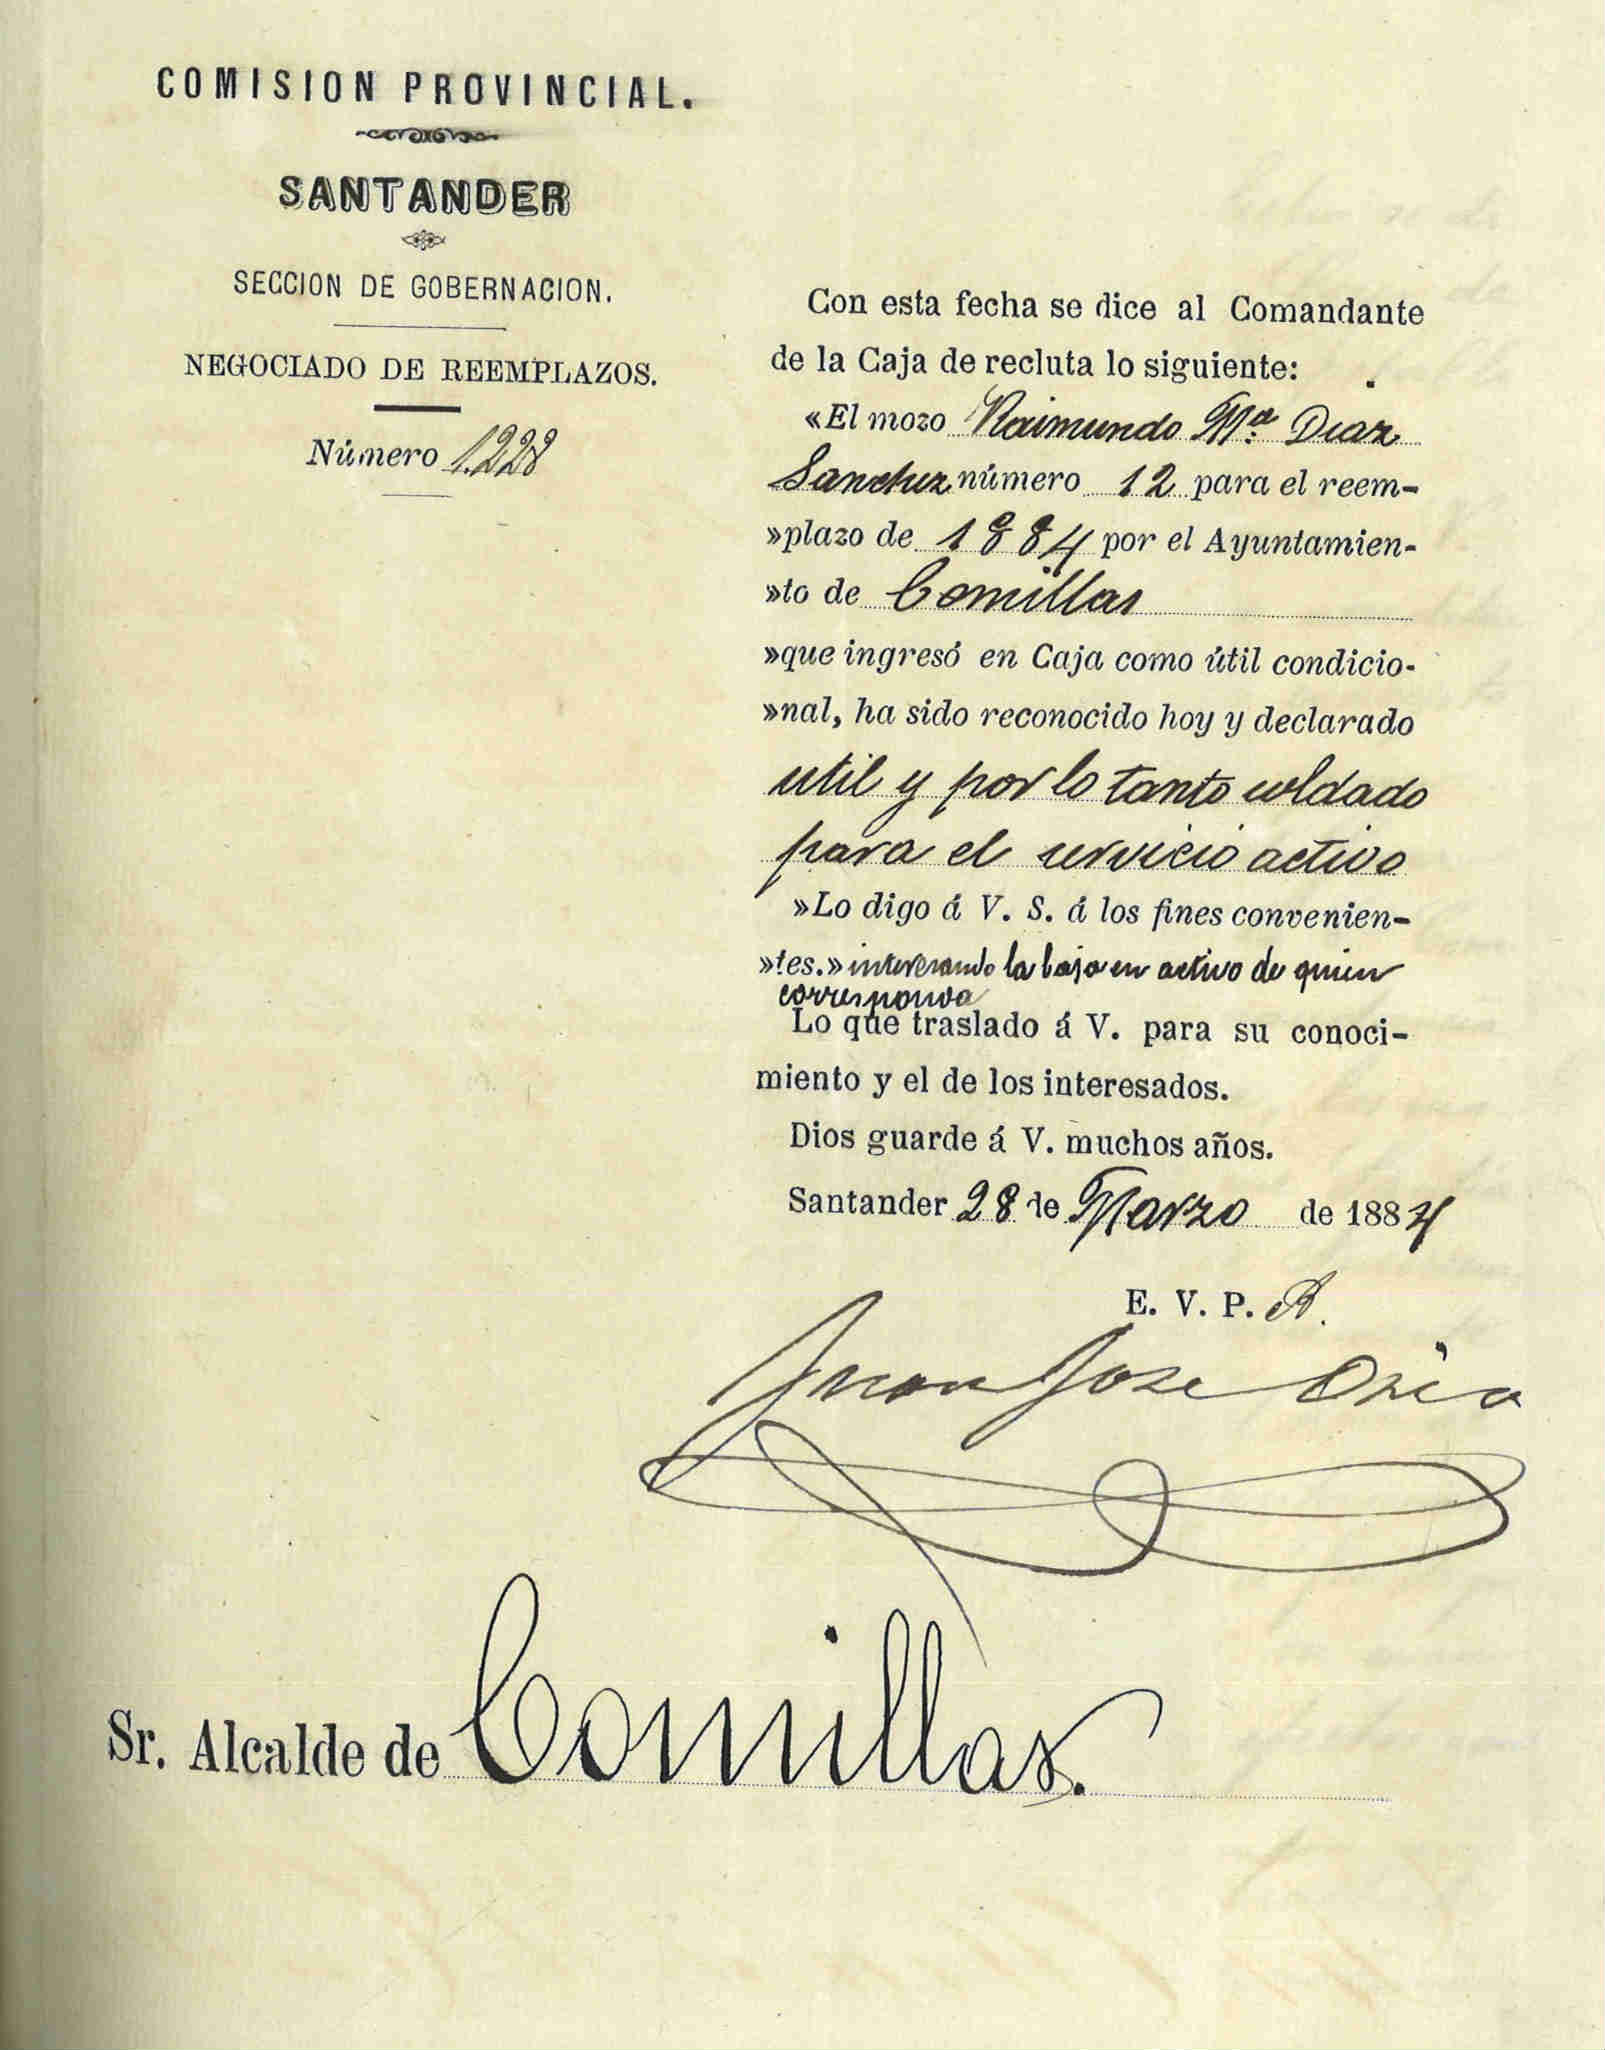 COMISION PROVINCIAL.
SANTANDER
SECCION DE GOBERNACION.
NEGOCIADO DE REEMPLAZOS.
Número 1.228
Con esta fecha se dice al Comandante
de la Caja de recluta lo siguiente:
«El mozo Raimundo Mª Diaz
Sanchez número 12 para el reem-
»plazo de 1884 por el Ayuntamien-
»to de Comillas
»que ingresó en Caja como útil condicio-
»nal, ha sido reconocido hoy y declarado
util y por lo tanto soldado
para el servicio activo
»Lo digo á V. S. á los fines convenien-
»tes.» interesando la baja en activo de quien
corresponda
Lo que traslado á V. para su conoci-
miento y el de los interesados.
Dios guarde á V. muchos años.
Santander 28 de Marzo de 1884
E. V. P. A.
Juan José Oria
Sr. Alcalde de Comillas.